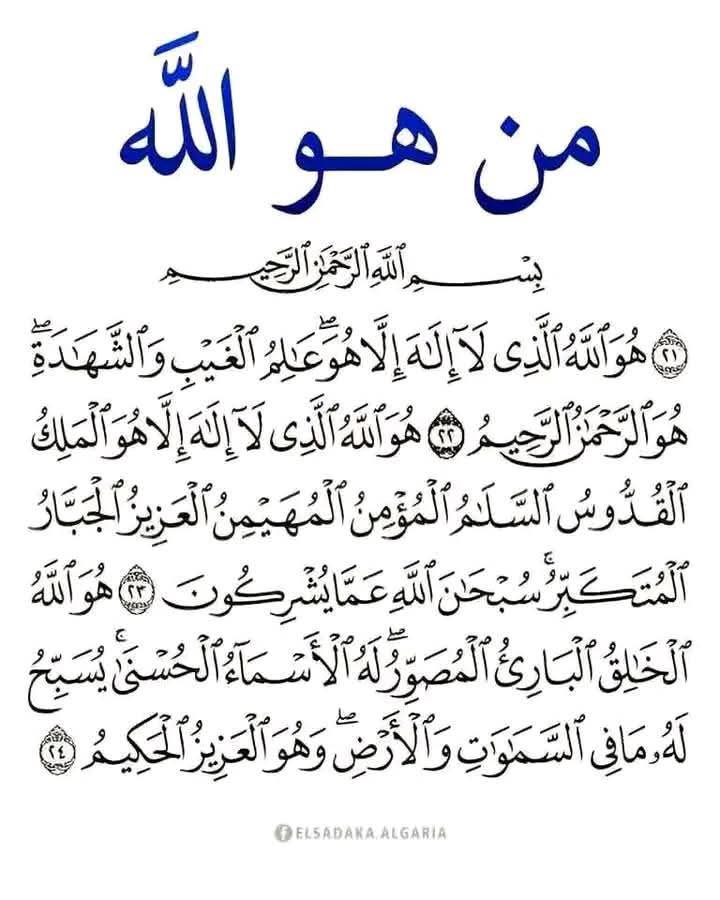 من هو الله
بِسْمِ ٱللَّهِ ٱلرَّحْمَٰنِ ٱلرَّحِيمِ
٢١ هُوَ ٱللَّهُ ٱلَّذِى لَآ إِلَٰهَ إِلَّا هُوَ ۖ عَٰلِمُ ٱلْغَيْبِ وَٱلشَّهَٰدَةِ ۖ
هُوَ ٱلرَّحْمَٰنُ ٱلرَّحِيمُ ٢٢ هُوَ ٱللَّهُ ٱلَّذِى لَآ إِلَٰهَ إِلَّا هُوَ ٱلْمَلِكُ
ٱلْقُدُّوسُ ٱلسَّلَٰمُ ٱلْمُؤْمِنُ ٱلْمُهَيْمِنُ ٱلْعَزِيزُ ٱلْجَبَّارُ
ٱلْمُتَكَبِّرُ ۚ سُبْحَٰنَ ٱللَّهِ عَمَّا يُشْرِكُونَ ٢٣ هُوَ ٱللَّهُ
ٱلْخَٰلِقُ ٱلْبَارِئُ ٱلْمُصَوِّرُ ۖ لَهُ ٱلْأَسْمَآءُ ٱلْحُسْنَىٰ ۚ يُسَبِّحُ
لَهُۥ مَا فِى ٱلسَّمَٰوَٰتِ وَٱلْأَرْضِ ۖ وَهُوَ ٱلْعَزِيزُ ٱلْحَكِيمُ ٢٤
ELSADAKA.ALGARIA